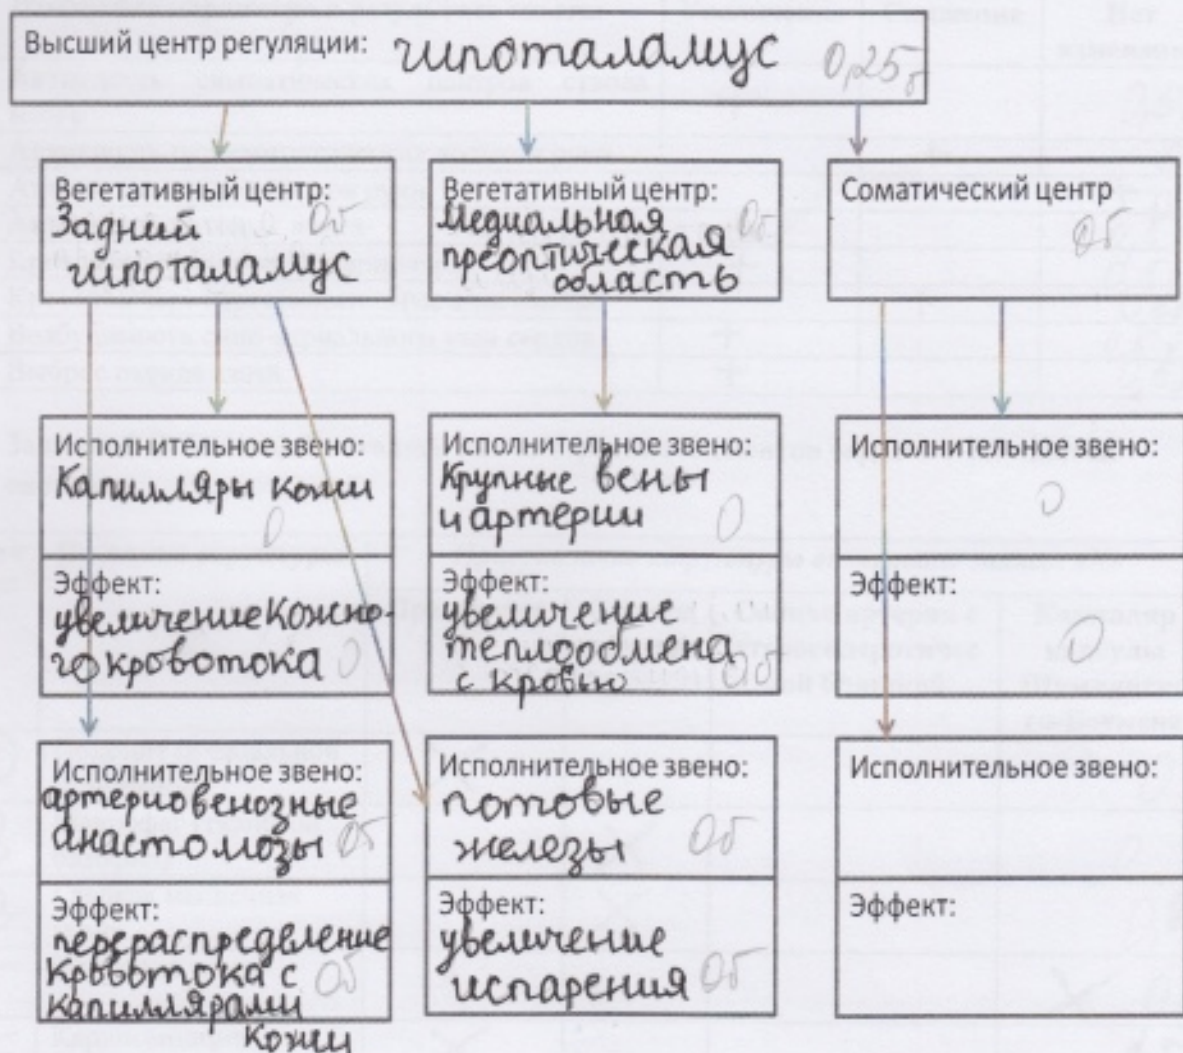 Высший центр регуляции: гипоталамус 0,25б
Вегетативный центр:
Задний 0б
гипоталамус
Вегетативный центр:
Медиальная 0б
преоптическая
область
Соматический центр
0б
Исполнительное звено:
Капилляры кожи
0
Эффект:
увеличение кожно-
го кровотока 0
Исполнительное звено:
Крупные вены
и артерии 0
Эффект:
увеличение
теплообмена
с кровью 0б
Исполнительное звено:
0
Эффект:
0
Исполнительное звено:
артериовенозные
анастомозы 0б
Эффект:
перераспределение
кровотока с 0б
капиллярами
кожи
Исполнительное звено:
потовые
железы 0б
Эффект:
увеличение
испарения 0б
Исполнительное звено:
Эффект: